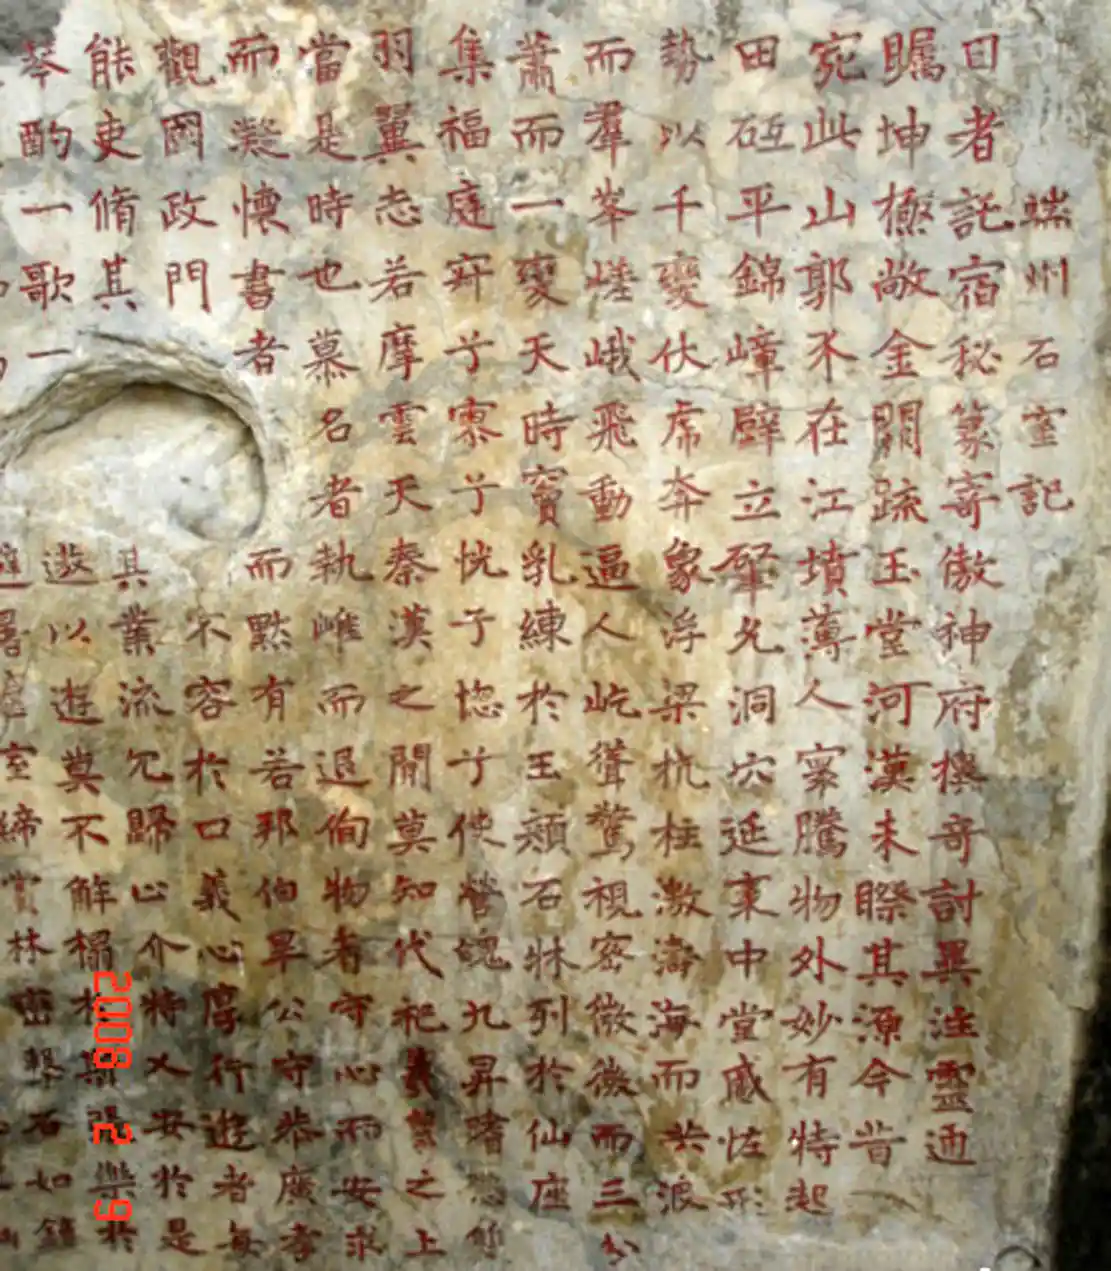 端州石室記
曰者託宿秘篆寄傲神府櫕奇討異注靈通
矚坤極敞金闕疏玉堂河漢未睽其源今昔
宛此山郭不在江墳薄人寰騰物外妙有特起
田砥平錦嶂壁立肇允洞穴延袤中堂感恠形
勢以千變伏虎奔象浮梁杭柱激濤海而共浪
而羣峯嵯峨飛動逼人屹聳驚視密微微而三分
蕭而一變天時竇乳練於玉頮石牀列於仙座
集福庭穽兮寥兮恍兮惚兮使營魄九昇嗜
羽翼志若摩雲天秦漢之開莫知代祀羲之上
當是時也慕名者執雌而退徇物者守心而安求
而凝懷書者而默有若邦伯畢公守恭廣孝
觀國政門不容於口義心厚行遊者每
能吏脩其其業流冗歸心介特乂安於是
琴酌一歌一遊以遊冀不解榻
室締賞林密石如鐘
2008 12 9